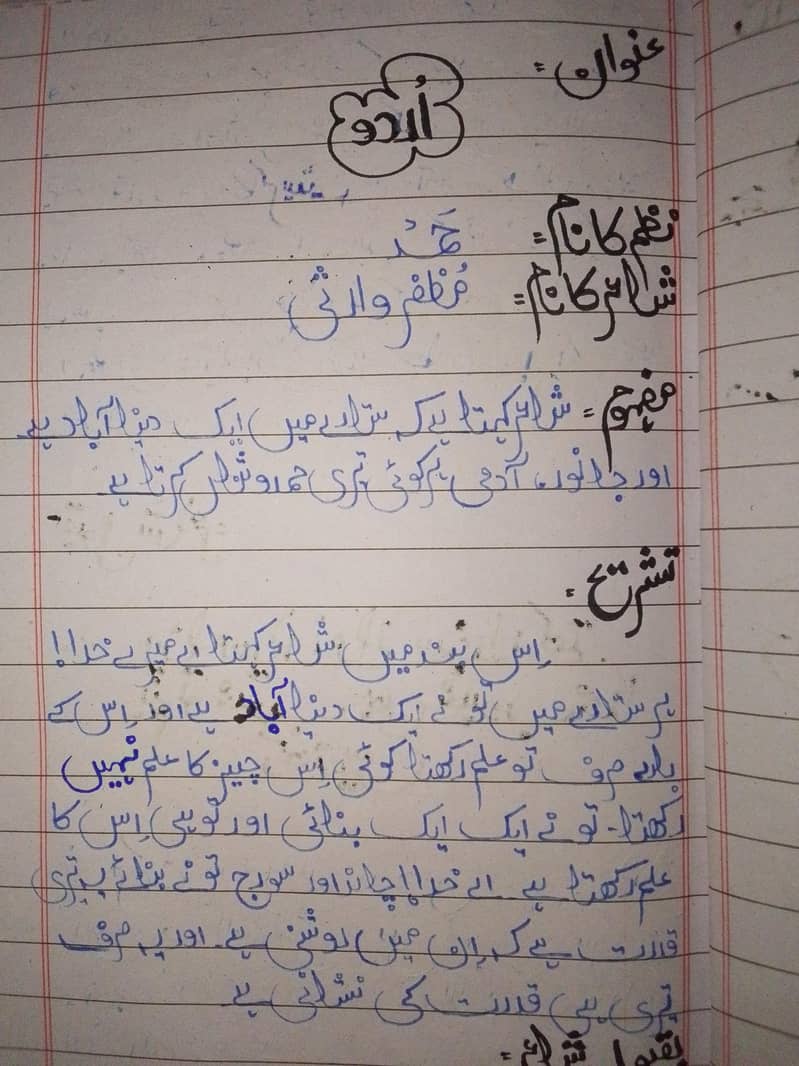 عنوان =
اُردو
نظم کا نام = حَمد
شاعر کا نام = مُظفر وارثی
موضوع = شاعر کہتا ہے کہ ستارے میں ایک دنیا آباد ہے
اور جانور، آدمی ہر کوئی تیری حمدوثناں کرتا ہے
تشریح =
اِس بند میں شاعر کہتا ہے میرے خدا!
ہر ستارے میں تُو نے ایک دنیا آباد ہے اور اِس کے
بارے صرف تو علم رکھتا کوئی اِس چیز کا علم نہیں
رکھتا۔ تو نے ایک ایک بنائی اور تو ہی اِس کا
علم رکھتا ہے اے خدا! چاند اور سورج تو نے بنائے یہ تیری
قدرت ہے کہ اِن میں روشنی ہے اور یہ صرف
تیری ہی قدرت کی نشانی ہے
بقول شاعر =